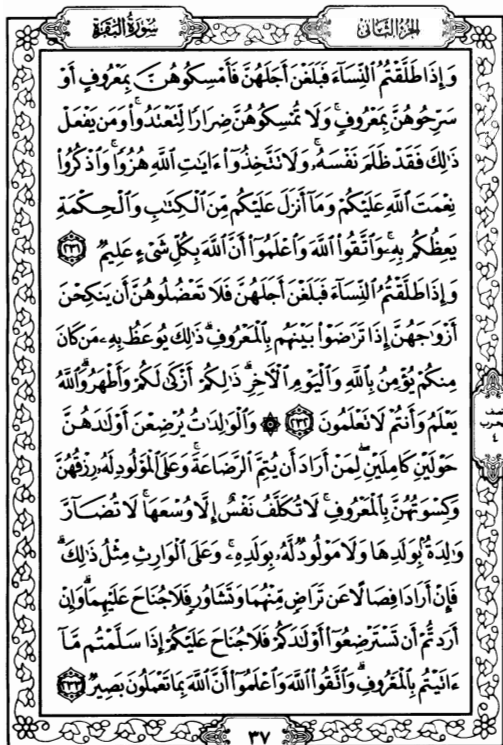 سُورَةُ البَقَرَةِ
الجُزْءُ الثَّانِي
وَإِذَا طَلَّقْتُمُ ٱلنِّسَآءَ فَبَلَغْنَ أَجَلَهُنَّ فَأَمْسِكُوهُنَّ بِمَعْرُوفٍ أَوْ
سَرِّحُوهُنَّ بِمَعْرُوفٍ ۚ وَلَا تُمْسِكُوهُنَّ ضِرَارًا لِّتَعْتَدُوا۟ ۚ وَمَن يَفْعَلْ
ذَٰلِكَ فَقَدْ ظَلَمَ نَفْسَهُۥ ۚ وَلَا تَتَّخِذُوٓا۟ ءَايَٰتِ ٱللَّهِ هُزُوًا ۚ وَٱذْكُرُوا۟
نِعْمَتَ ٱللَّهِ عَلَيْكُمْ وَمَآ أَنزَلَ عَلَيْكُم مِّنَ ٱلْكِتَٰبِ وَٱلْحِكْمَةِ
يَعِظُكُم بِهِۦ ۚ وَٱتَّقُوا۟ ٱللَّهَ وَٱعْلَمُوٓا۟ أَنَّ ٱللَّهَ بِكُلِّ شَىْءٍ عَلِيمٌ ٢٣١
وَإِذَا طَلَّقْتُمُ ٱلنِّسَآءَ فَبَلَغْنَ أَجَلَهُنَّ فَلَا تَعْضُلُوهُنَّ أَن يَنكِحْنَ
أَزْوَٰجَهُنَّ إِذَا تَرَٰضَوْا۟ بَيْنَهُم بِٱلْمَعْرُوفِ ۗ ذَٰلِكَ يُوعَظُ بِهِۦ مَن كَانَ
مِنكُمْ يُؤْمِنُ بِٱللَّهِ وَٱلْيَوْمِ ٱلْـَٔاخِرِ ۗ ذَٰلِكُمْ أَزْكَىٰ لَكُمْ وَأَطْهَرُ ۗ وَٱللَّهُ
يَعْلَمُ وَأَنتُمْ لَا تَعْلَمُونَ ٢٣٢ ۞ وَٱلْوَٰلِدَٰتُ يُرْضِعْنَ أَوْلَٰدَهُنَّ
حَوْلَيْنِ كَامِلَيْنِ ۖ لِمَنْ أَرَادَ أَن يُتِمَّ ٱلرَّضَاعَةَ ۚ وَعَلَى ٱلْمَوْلُودِ لَهُۥ رِزْقُهُنَّ
وَكِسْوَتُهُنَّ بِٱلْمَعْرُوفِ ۚ لَا تُكَلَّفُ نَفْسٌ إِلَّا وُسْعَهَا ۚ لَا تُضَآرَّ
وَٰلِدَةٌۢ بِوَلَدِهَا وَلَا مَوْلُودٌ لَّهُۥ بِوَلَدِهِۦ ۚ وَعَلَى ٱلْوَارِثِ مِثْلُ ذَٰلِكَ ۗ
فَإِنْ أَرَادَا فِصَالًا عَن تَرَاضٍ مِّنْهُمَا وَتَشَاوُرٍ فَلَا جُنَاحَ عَلَيْهِمَا ۗ وَإِنْ
أَرَدتُّمْ أَن تَسْتَرْضِعُوٓا۟ أَوْلَٰدَكُمْ فَلَا جُنَاحَ عَلَيْكُمْ إِذَا سَلَّمْتُم مَّآ
ءَاتَيْتُم بِٱلْمَعْرُوفِ ۗ وَٱتَّقُوا۟ ٱللَّهَ وَٱعْلَمُوٓا۟ أَنَّ ٱللَّهَ بِمَا تَعْمَلُونَ بَصِيرٌ ٢٣٣
٤
٣٧